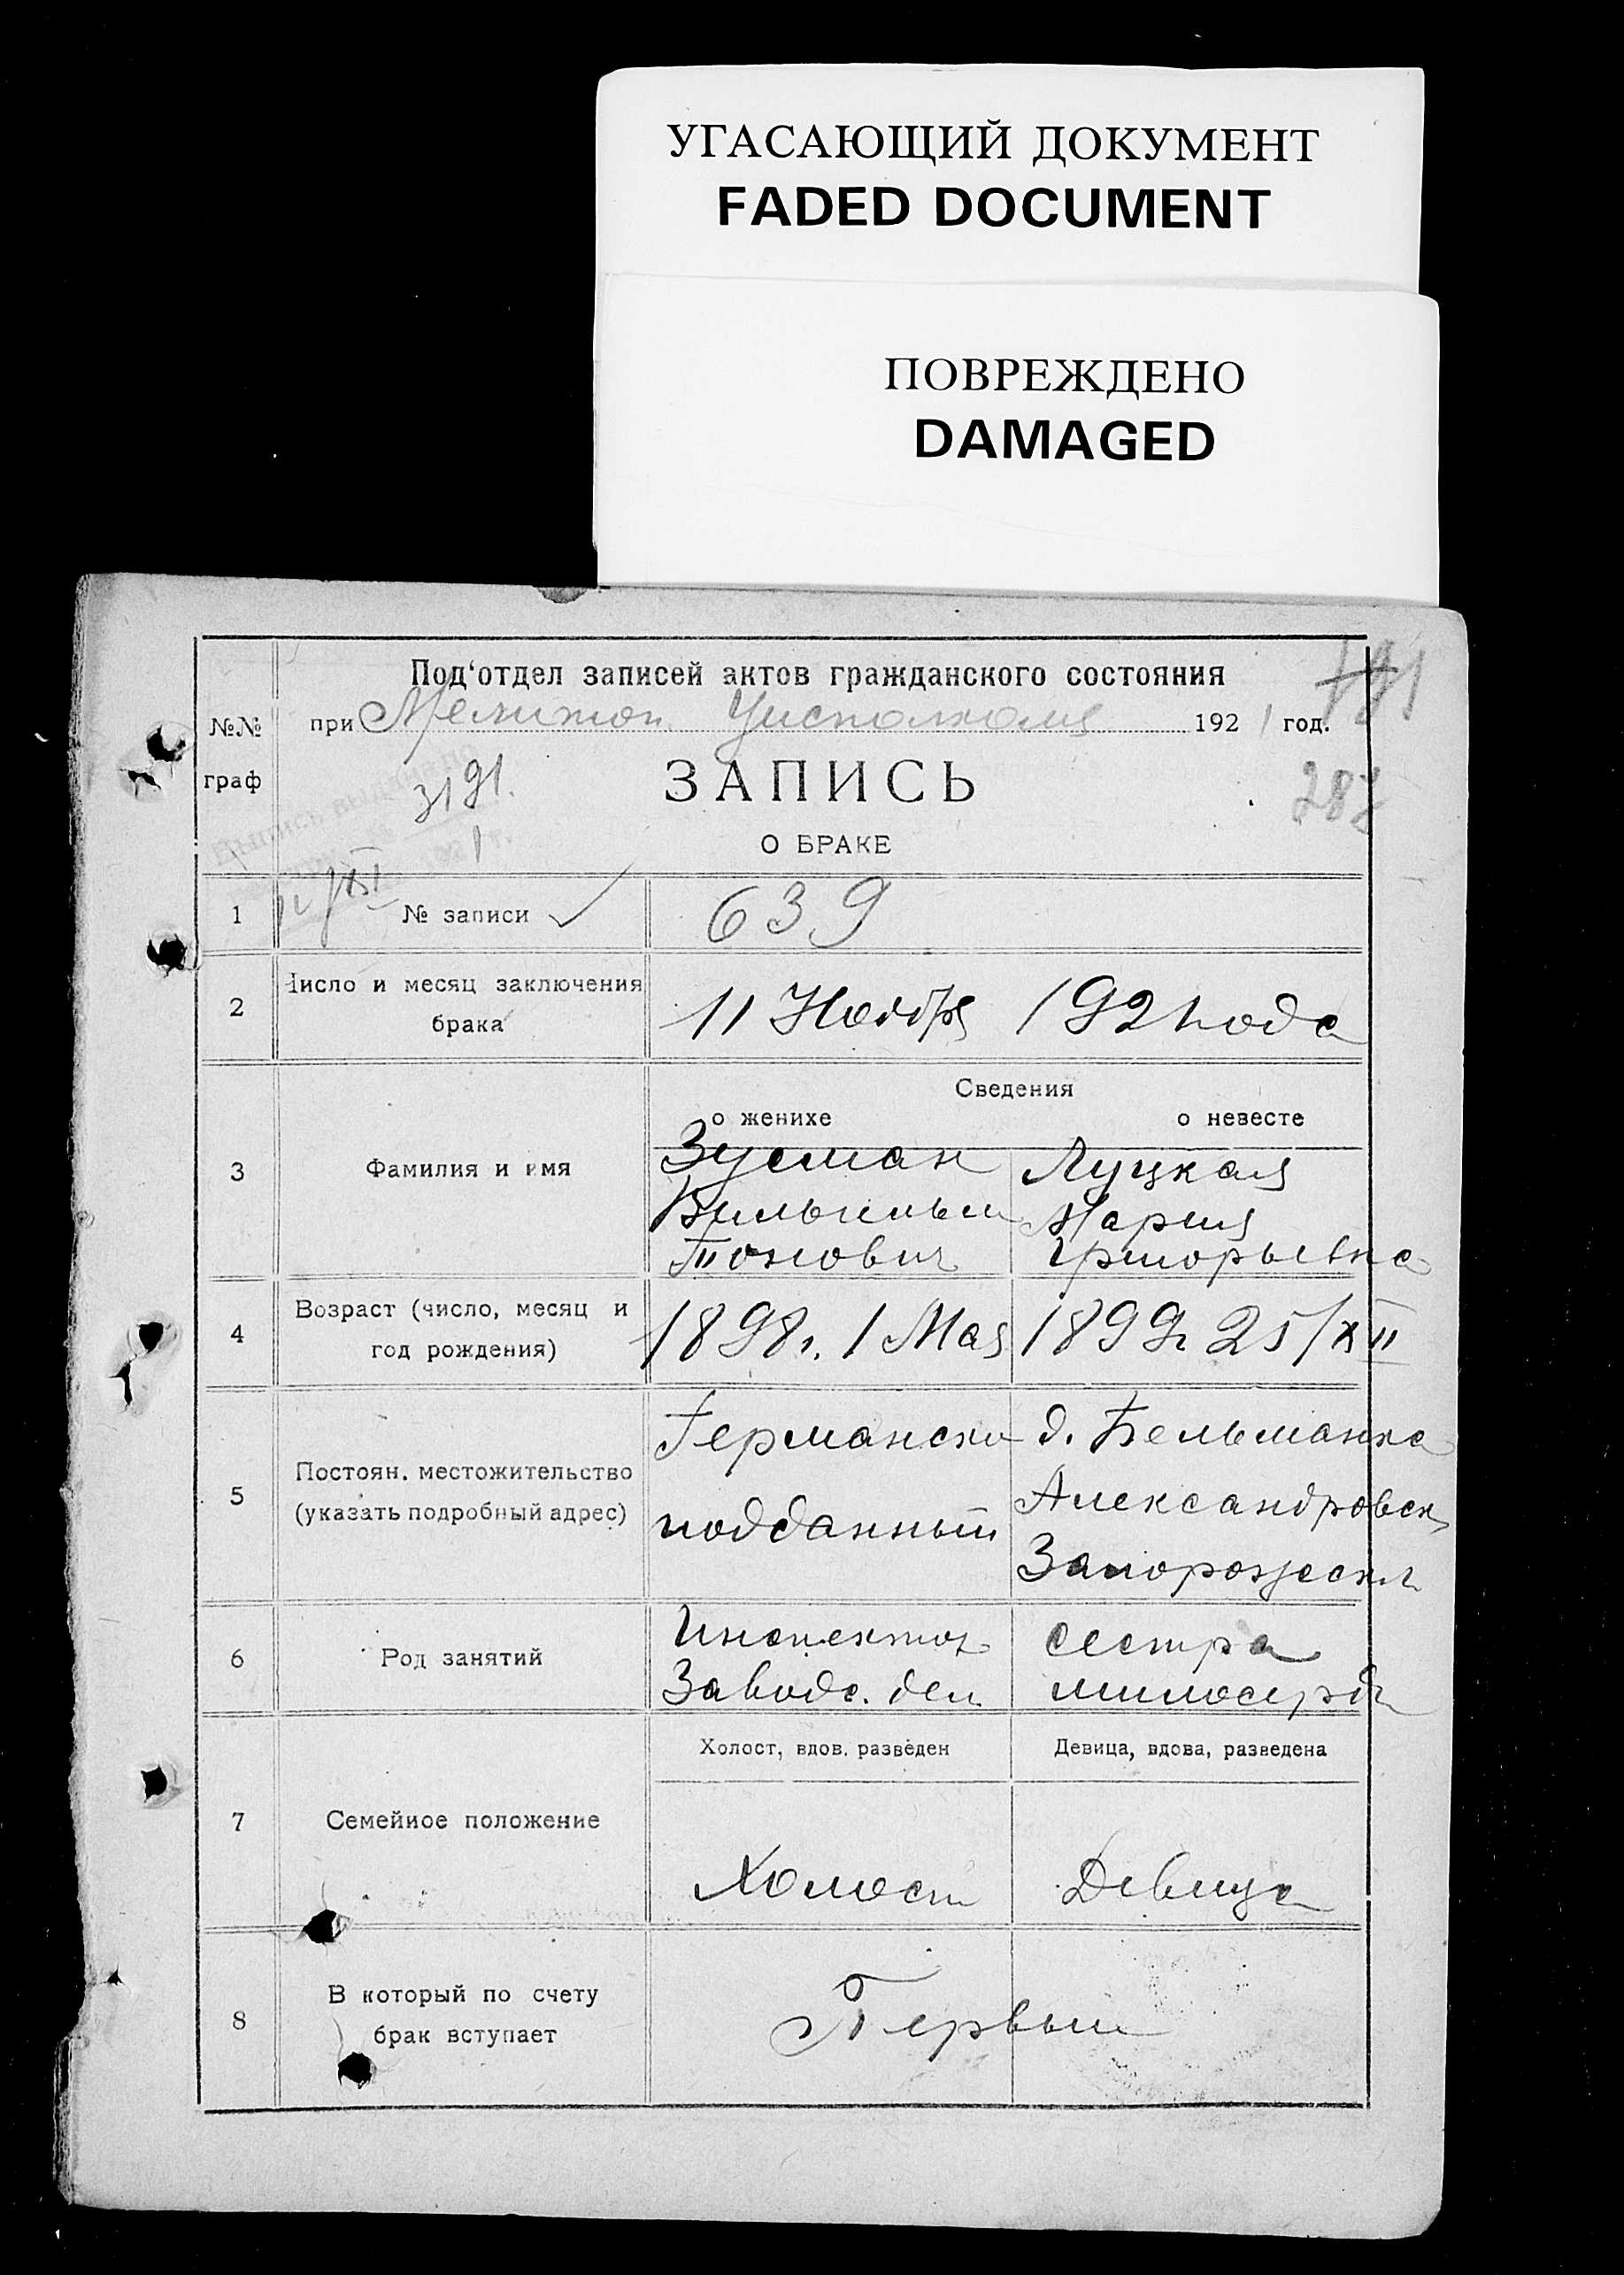 УГАСАЮЩИЙ ДОКУМЕНТ
FADED DOCUMENT
ПОВРЕЖДЕНО
DAMAGED
Под‘отдел записей актов гражданского состояния
№№ граф
при Мелитоп. Уисполкома 1921 год.
191
3191.
ЗАПИСЬ
О БРАКЕ
287
1 № записи 639
2 Число и месяц заключения
брака
11 Ноября 1921 года
Сведения
о женихе о невесте
3 Фамилия и имя
Зусман Луцкая
Вильгельм Мария
Григорьевна
4 Возраст (число, месяц и
год рождения)
1898г. 1 Мая 1899г 25/XII
5 Постоян. местожительство
(указать подробный адрес)
Германски д. Бельманка
подданный Александровск
Запорожск.г.
6 Род занятий
Инспектор сестра
Заводс. дел милосерд
Холост, вдов. разведен Девица, вдова, разведена
7 Семейное положение
Холост Девица
8 В который по счету
брак вступает
Первый